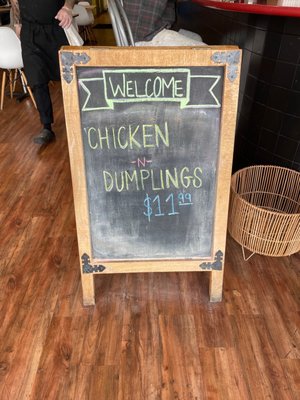 WELCOME
CHICKEN
-N-
DUMPLINGS
$11.99